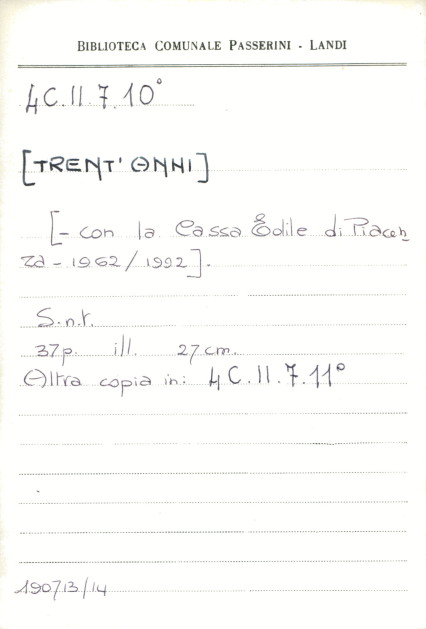 BIBLIOTECA COMUNALE PASSERINI - LANDI
4C.II.7.10°
[TRENT' ANNI]
[- con la Cassa Edile di Piacen
za - 1962/1992].
S.n.t.
37p. ill. 27cm.
Altra copia in: 4C.II.7.11°
190713/14